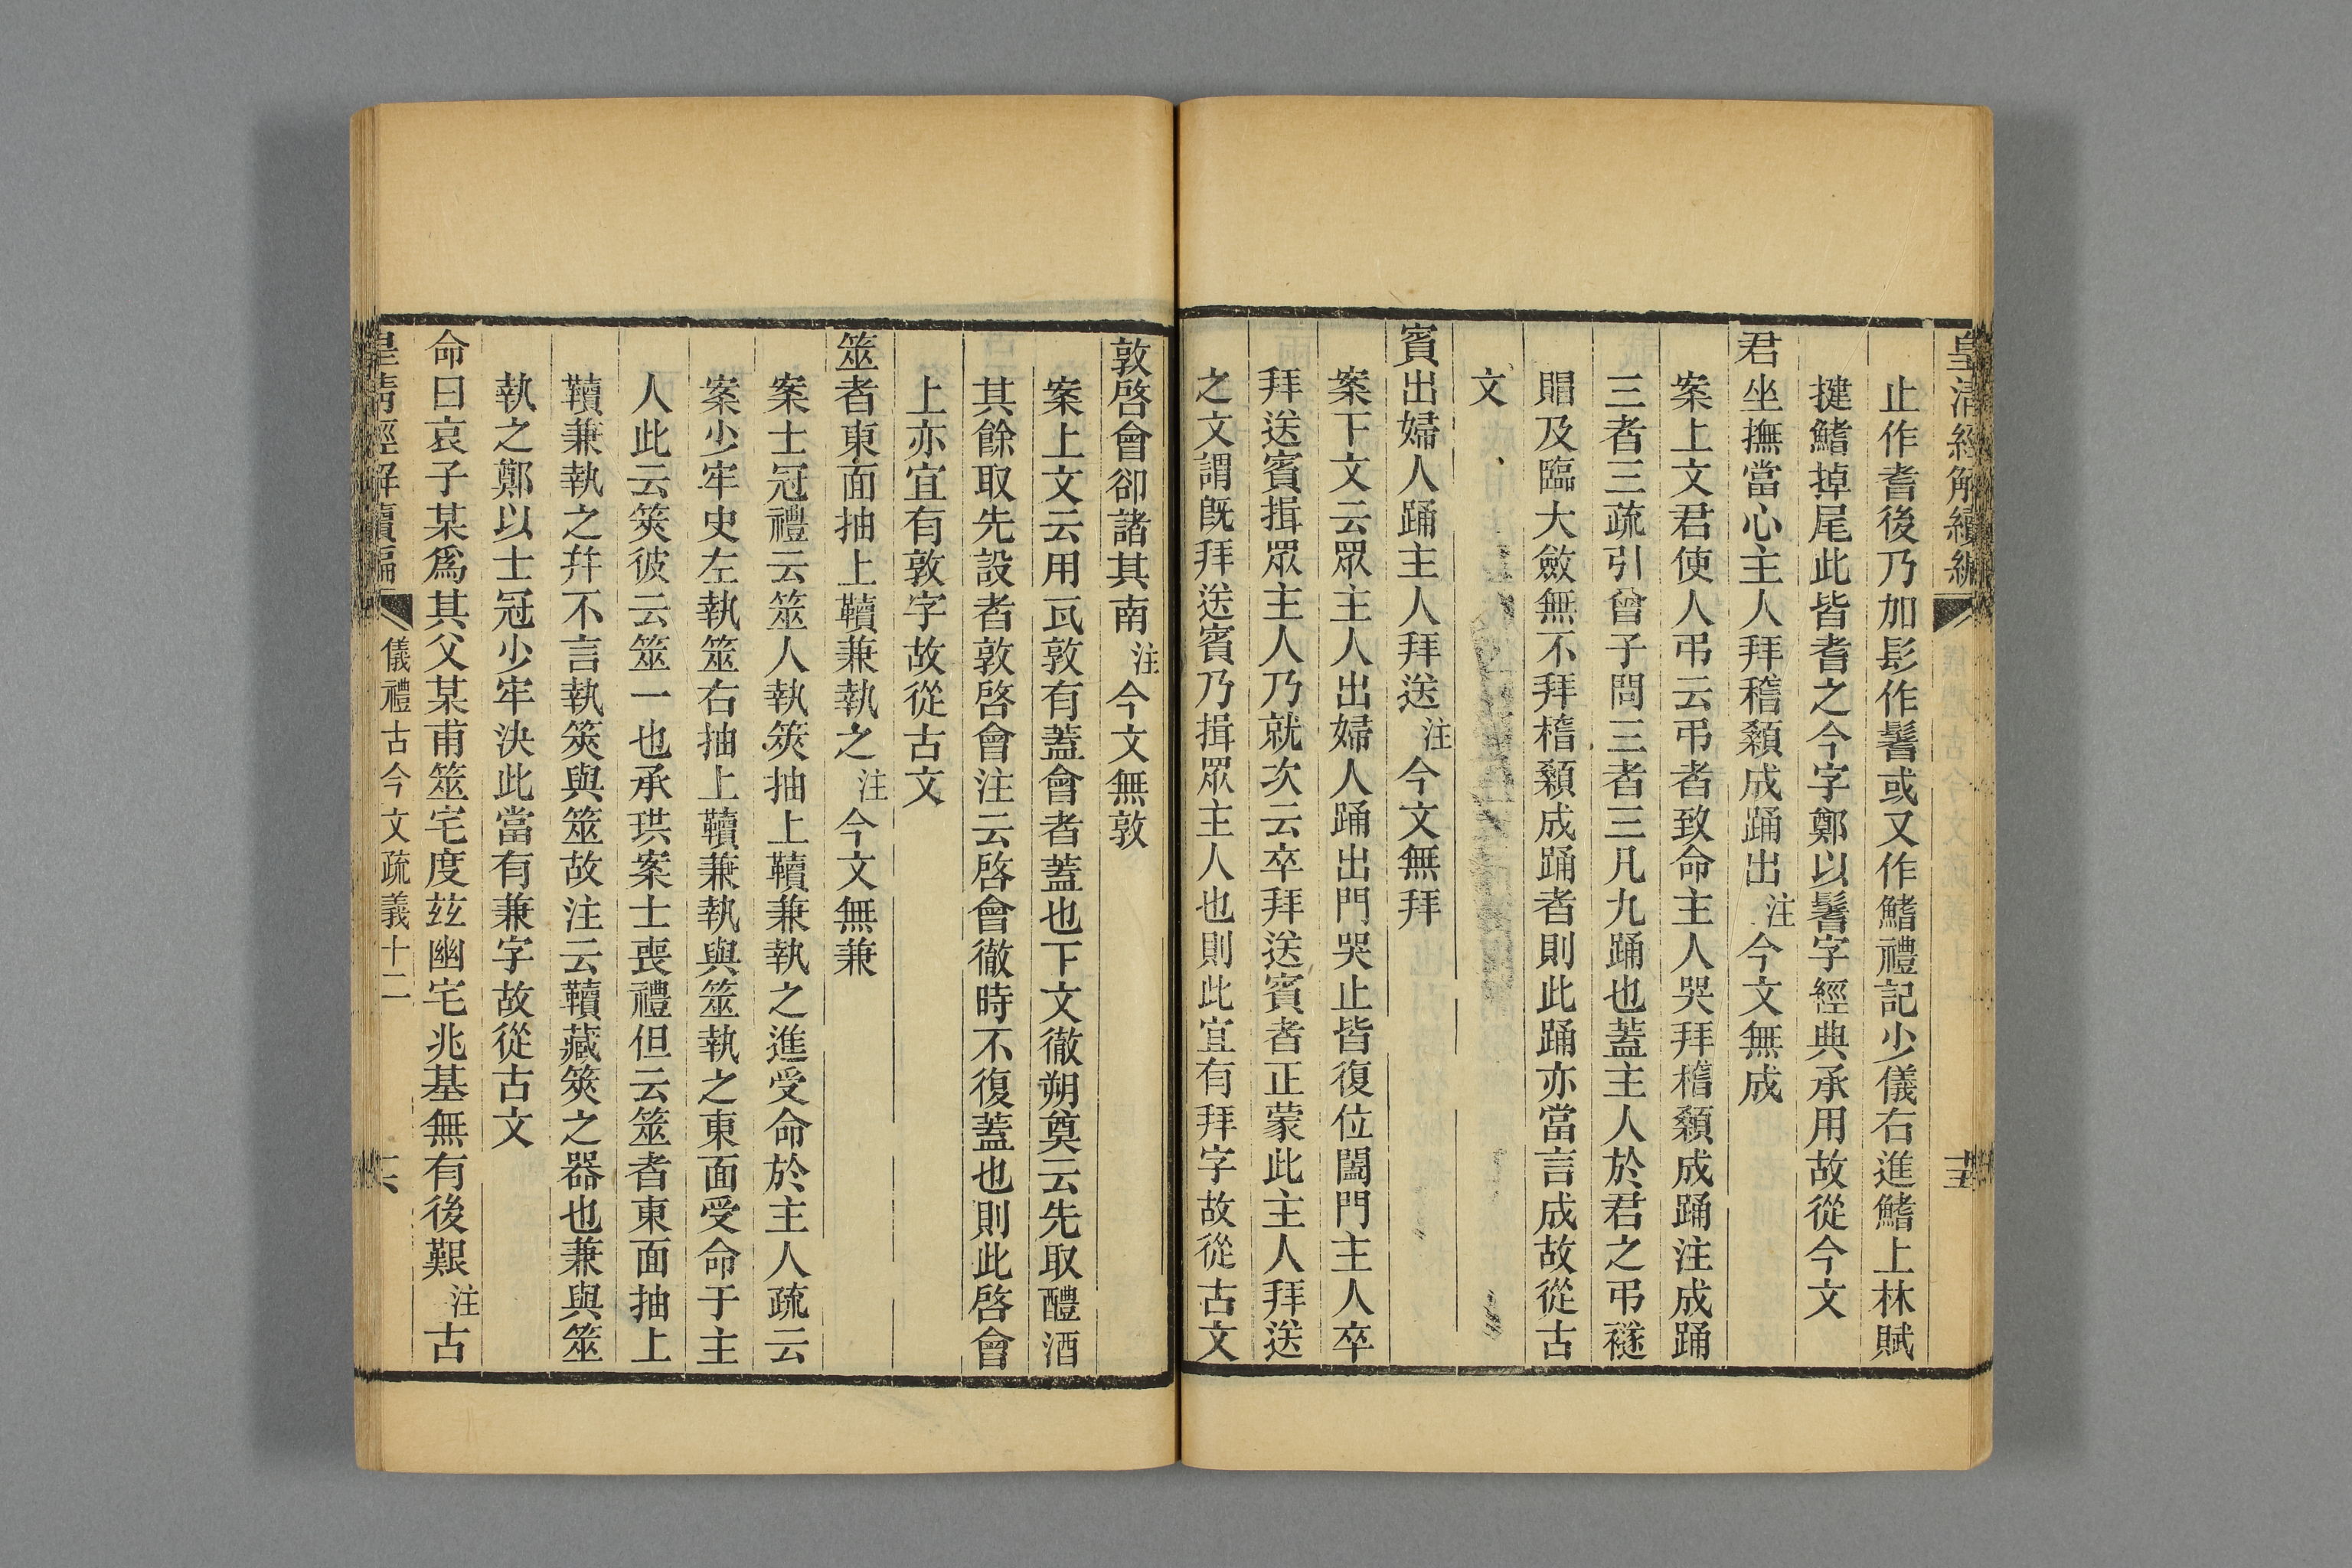 皇清經解續編
十五
止作耆後乃加髟作鬐或又作鰭禮記少儀右進鰭上林賦
揵鰭掉尾此皆耆之今字鄭以鬐字經典承用故從今文
君坐撫當心主人拜稽顙成踊出注今文無成
案上文君使人弔云弔者致命主人哭拜稽顙成踊注成踊
三者三疏引曾子問三者三凡九踊也蓋主人於君之弔襚
賵及臨大斂無不拜稽顙成踊者則此踊亦當言成故從古
文
賓出婦人踊主人拜送注今文無拜
案下文云眾主人出婦人踊出門哭止皆復位闔門主人卒
拜送賓揖眾主人乃就次云卒拜送賓者正蒙此主人拜送
之文謂旣拜送賓乃揖眾主人也則此宜有拜字故從古文
敦啓會卻諸其南注今文無敦
案上文云用瓦敦有蓋會者蓋也下文徹朔奠云先取醴酒
其餘取先設者敦啓會注云啓會徹時不復蓋也則此啓會
上亦宜有敦字故從古文
筮者東面抽上韇兼執之注今文無兼
案士冠禮云筮人執筴抽上韇兼執之進受命於主人疏云
案少牢史左執筮右抽上韇兼執與筮執之東面受命于主
人此云筴彼云筮一也承珙案士喪禮但云筮者東面抽上
韇兼執之幷不言執筴與筮故注云韇藏筴之器也兼與筮
執之鄭以士冠少牢決此當有兼字故從古文
命曰哀子某爲其父某甫筮宅度玆幽宅兆基無有後艱注古
皇清經解續編
儀禮古今文疏義十二
十六